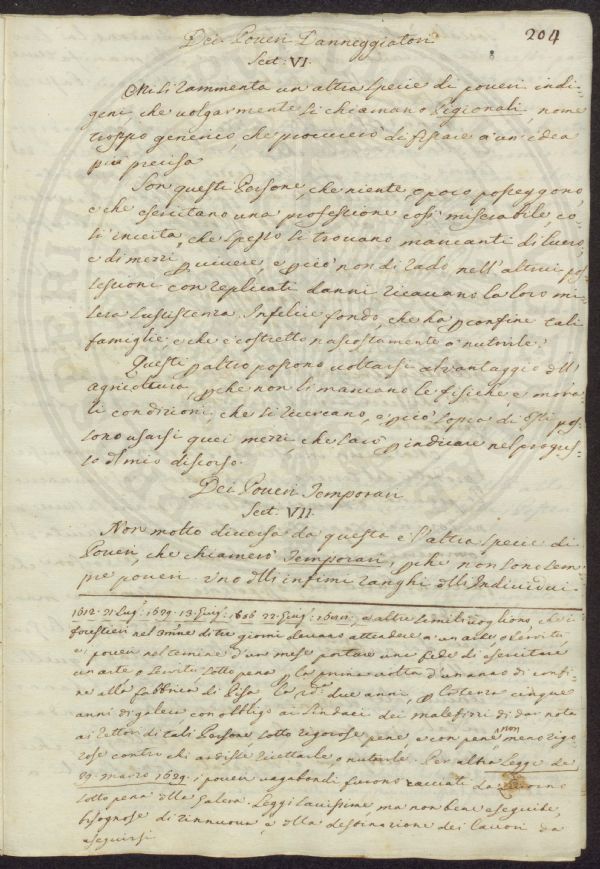 204
Dei Poveri Danneggiatori
Sect: VI.
Mi si rammenta un altra specie di poveri indi-
geni, che volgarmente si chiamano Pigionali, nome
troppo generico, che procurerò di fissare a un'idea
più precisa
Son queste Persone, che niente, o poco posseggono,
e che esercitano una professione così miserabile co-
sì incerta, che spesso si trovano mancanti di lucro,
e di mezzi p vivere, e p ciò non di rado nell'altrui pos-
sessioni con replicati danni ricavano la loro mi-
sera sussistenza. Infelice fondo, che ha p confine tali
famiglie, e che è costretto nascostamente a nutrirle!
Questi p altro possono voltarsi al vantaggio dell'
agricoltura, p che non li mancano le fisiche e mora-
li condizioni, che si ricercano, e p ciò sopra di Essi pos-
sono usarsi quei mezzi, che sarò p indicare nel progres-
so del mio discorso.
Dei Poveri Temporari
Sect. VII.
Non molto diversa da questa è l'altra specie di
Poveri, che chiamerò Temporari, p che non sono sem-
pre poveri. Uno degli infimi ranghi degli Individui
1612. 21 Lug: 1629. 13. Giug: 1606 22. Giug: e altre simili vogliono, che i
forestieri nel termine di tre giorni devano attendere a un arte o servitù
e i poveri nel termine d'un mese portare una fede di esercitare
un arte o servitù sotto pena p la prima volta d'un anno di confi-
ne alla fabbrica di Pisa. la 2da: due anni, p la terza cinque
anni di galera con obbligo ai Sindaci dei malefizi di dar nota
ai Rettori di tali Persone sotto rigorose pene, e con pene non meno rigo-
rose contro chi ardisse ricettarle o nutrirle. Per altra Legge de
29. marzo 1629. i poveri vagabondi furono cacciati da
sotto pena della Galera. Leggi savissime, ma non bene eseguite,
bisognose di rinnuova, e della destinazione dei lavori da
eseguirsi